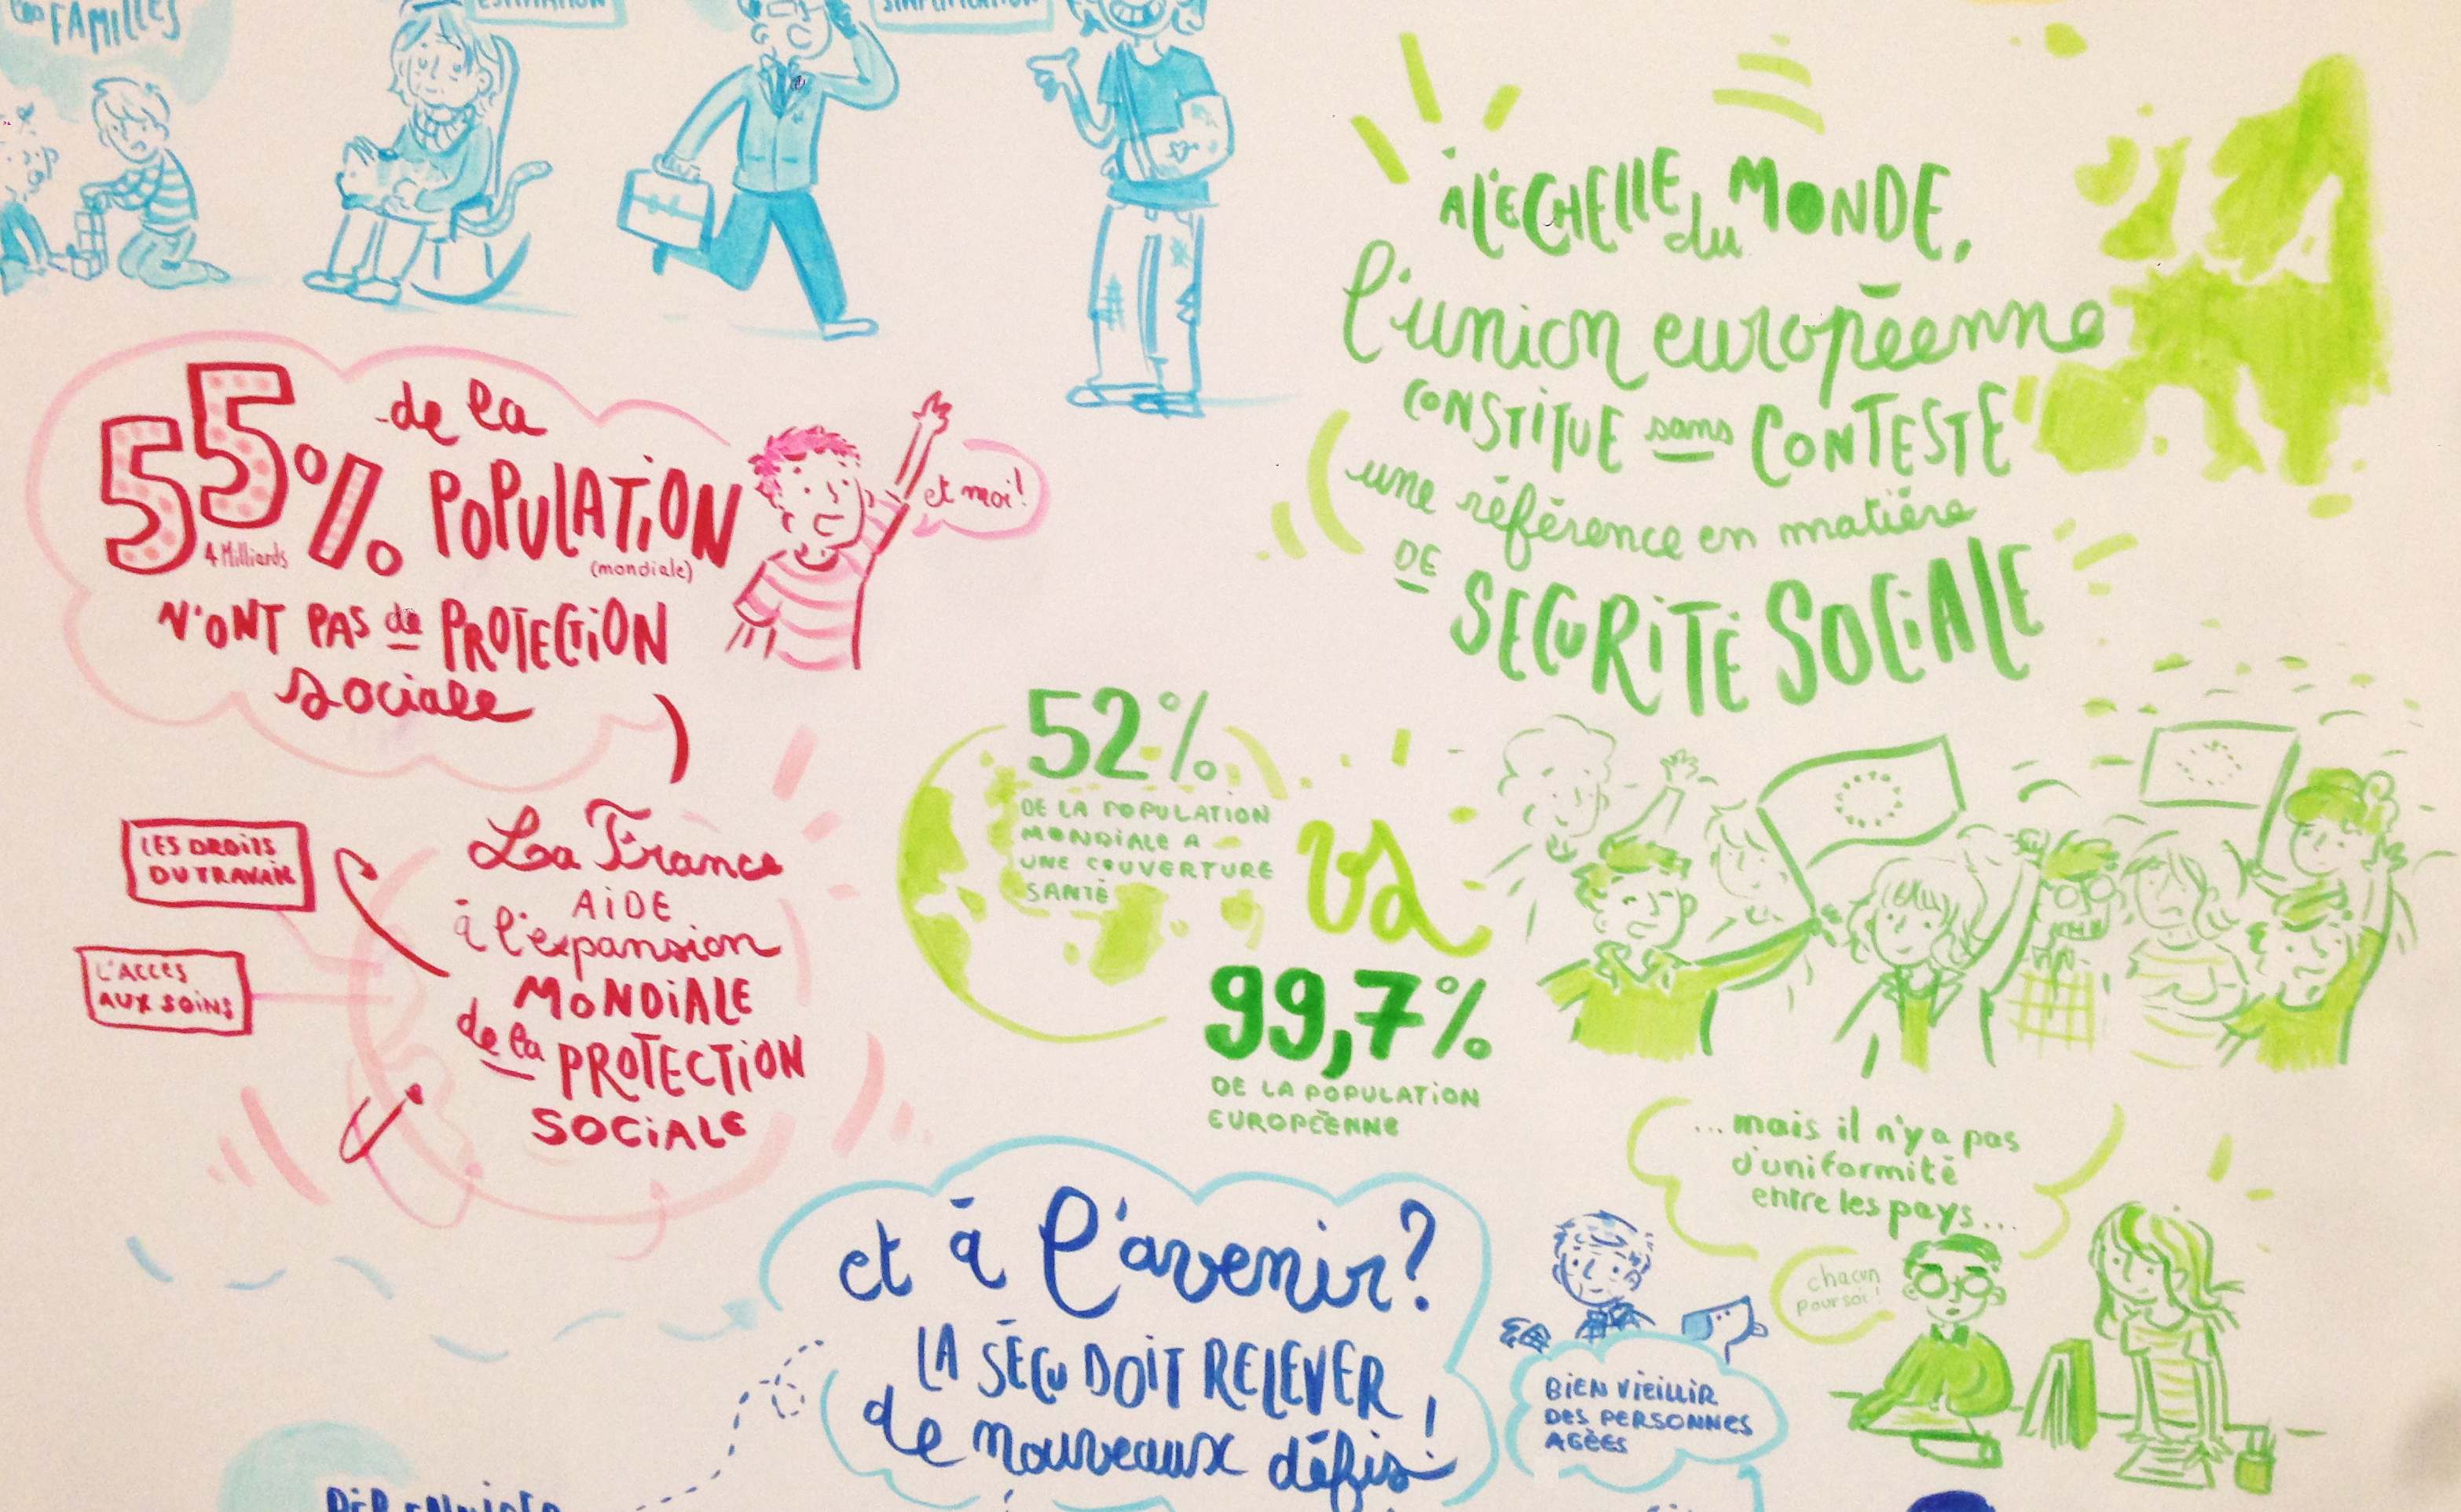 FAMILLES
55% de la
4 Milliards
POPULATION
(mondiale)
N'ONT PAS de PROTECTION
sociale
et moi!
LES DROITS
DU TRAVAIL
L'ACCES
AUX SOINS
La France
AIDE
à l'expansion
MONDIALE
de la PROTECTION
SOCIALE
À L'ECHELLE du MONDE,
l'union européenne
CONSTITUE sans CONTESTE
une référence en matière
DE
SECURITÉ SOCIALE
52%
DE LA POPULATION
MONDIALE A
UNE COUVERTURE
SANTÉ
VS
99,7%
DE LA POPULATION
EUROPÉENNE
...mais il n'y a pas
d'uniformité
entre les pays...
chacun
pour soi!
et à l'avenir?
LA SÉCU DOIT RELEVER
de nouveaux défis!
BIEN VIEILLIR
DES PERSONNES
AGÉES